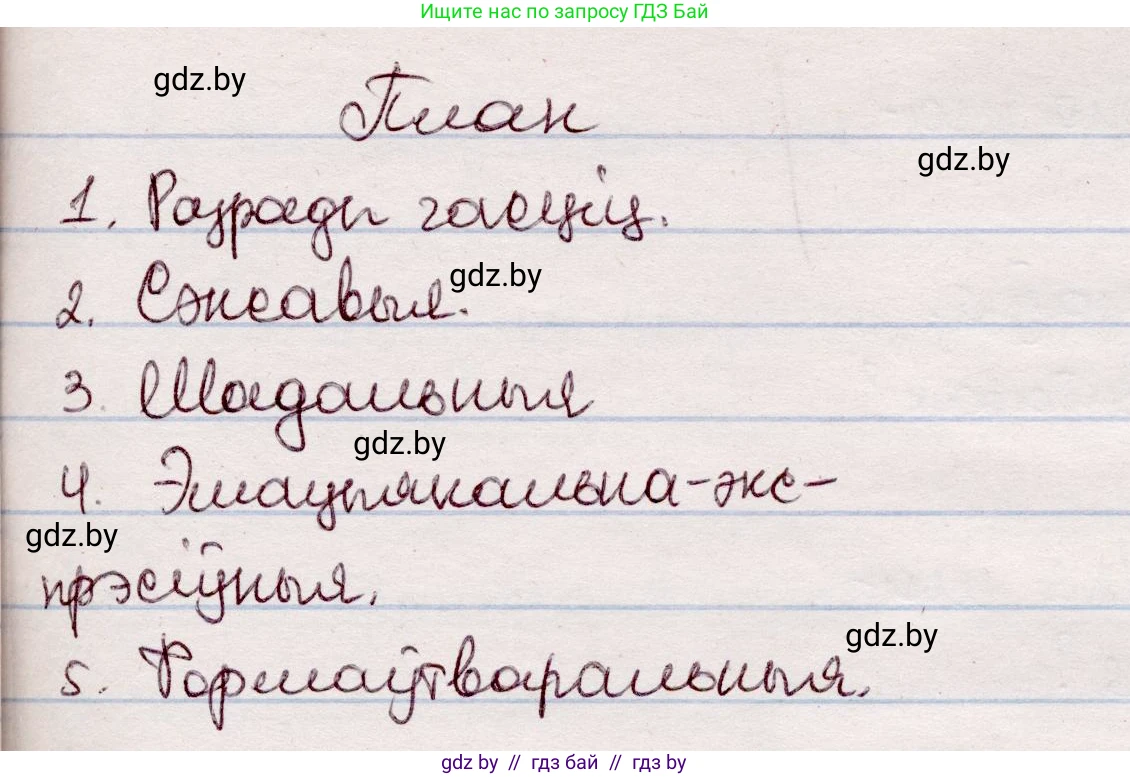 Ищите нас по запросу ГДЗ Бай
gdz.by
План
gdz.by
1. Разряды часціц.
gdz.by
2. Сэнсавыя.
3. Мадальныя
gdz.by
4. Эмацыянальна-экс-
gdz.by
прэсіўныя.
gdz.by
5. Формаўтваральныя.
gdz by // гдз бай // гдз by